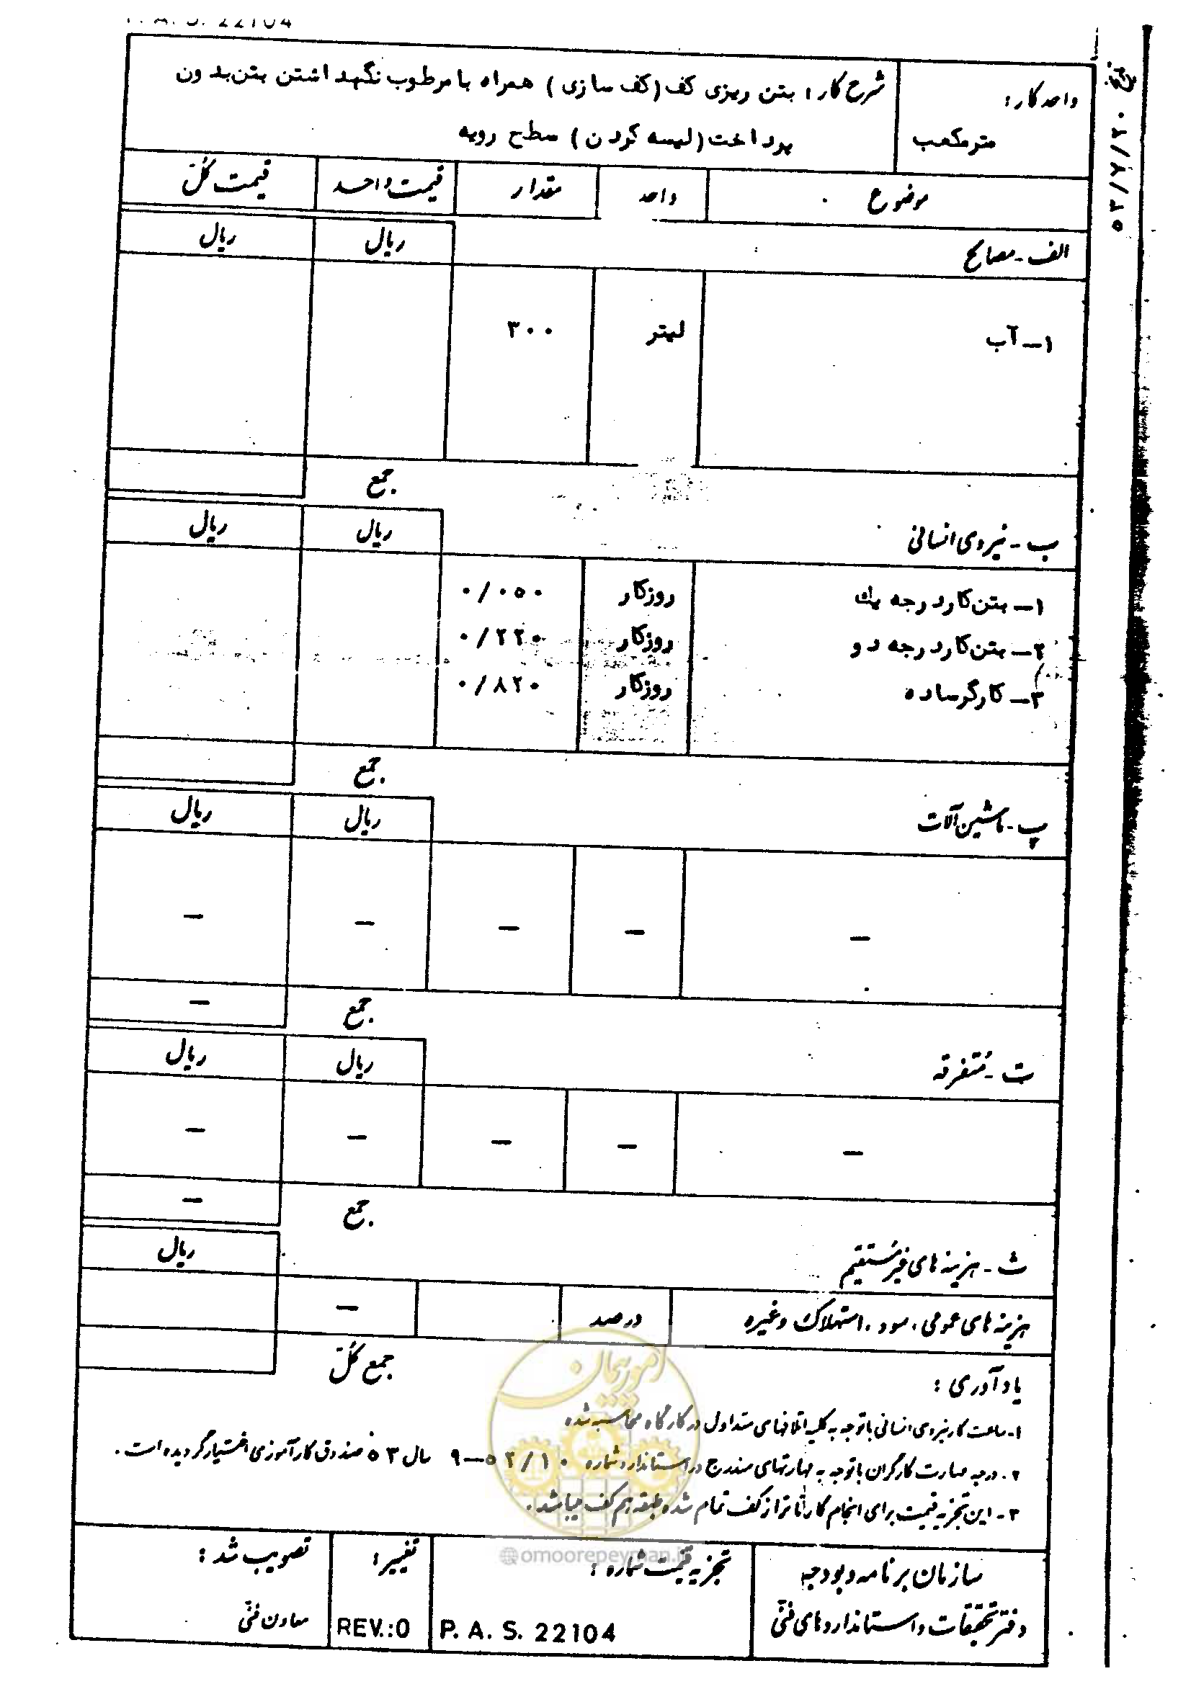 P. A. S. 22104
۵۳/۷/۲۰
واحد کار :
متر مکعب
شرح کار : بتن ریزی کف (کف سازی) همراه با مرطوب نگهداشتن بتن بدون
پرداخت (لیسه کردن) سطح رویه
موضوع واحد مقدار قیمت واحد قیمت کل
الف - مصالح ریال ریال
۱- آب لیتر ۳۰۰
جمع
ب - نیروی انسانی ریال ریال
۱- بتن کار درجه یک روزکار ۰/۰۵۰
۲- بتن کار درجه دو روزکار ۰/۲۲۰
۳- کارگر ساده روزکار ۰/۸۲۰
جمع
پ - ماشین آلات ریال ریال
— — — — —
جمع —
ت - متفرقه ریال ریال
— — — — —
جمع —
ث - هزینه های غیرمستقیم ریال
هزینه های عمومی ، سود ، استهلاک وغیره درصد —
جمع کل
یادآوری :
۱- ساعت کار نیروی انسانی باتوجه به کلیه اتلافهای متداول در کارگاه محاسبه شده
۲- درجه مهارت کارگران باتوجه به مهارتهای مندرج در استاندارد شماره ۱۰/ ۵۲-۹ سال ۵۳ صندوق کارآموزی اختیار گردیده است .
۳- این تجزیه قیمت برای انجام کار تا تراز کف تمام شده طبقه هم کف میباشد .
امور پیمان
@omoorepeyman.ir
سازمان برنامه و بودجه
دفتر تحقیقات و استانداردهای فنی
تجزیه قیمت شماره :
P. A. S. 22104
تغییر :
REV.:0
تصویب شد :
معاون فنی